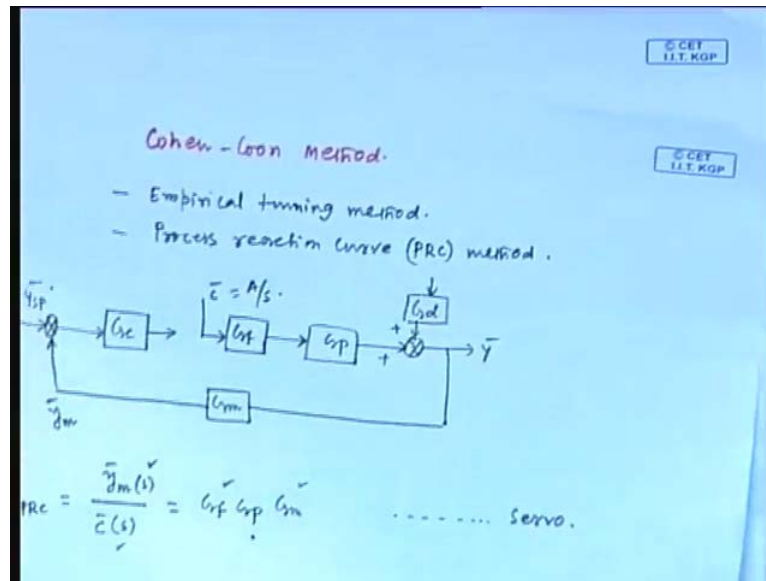 © CET
I.I.T. KGP
Cohen-Coon method.
© CET
I.I.T. KGP
- Empirical tunning method.
- Process reaction curve (PRC) method.
ȳsp
Gc
c̄ = A/s.
Gf
Gp
+
+
Gd
ȳ
Gm
ȳm
PRC = ȳm(s) / c̄(s) = Gf Gp Gm ........ servo.